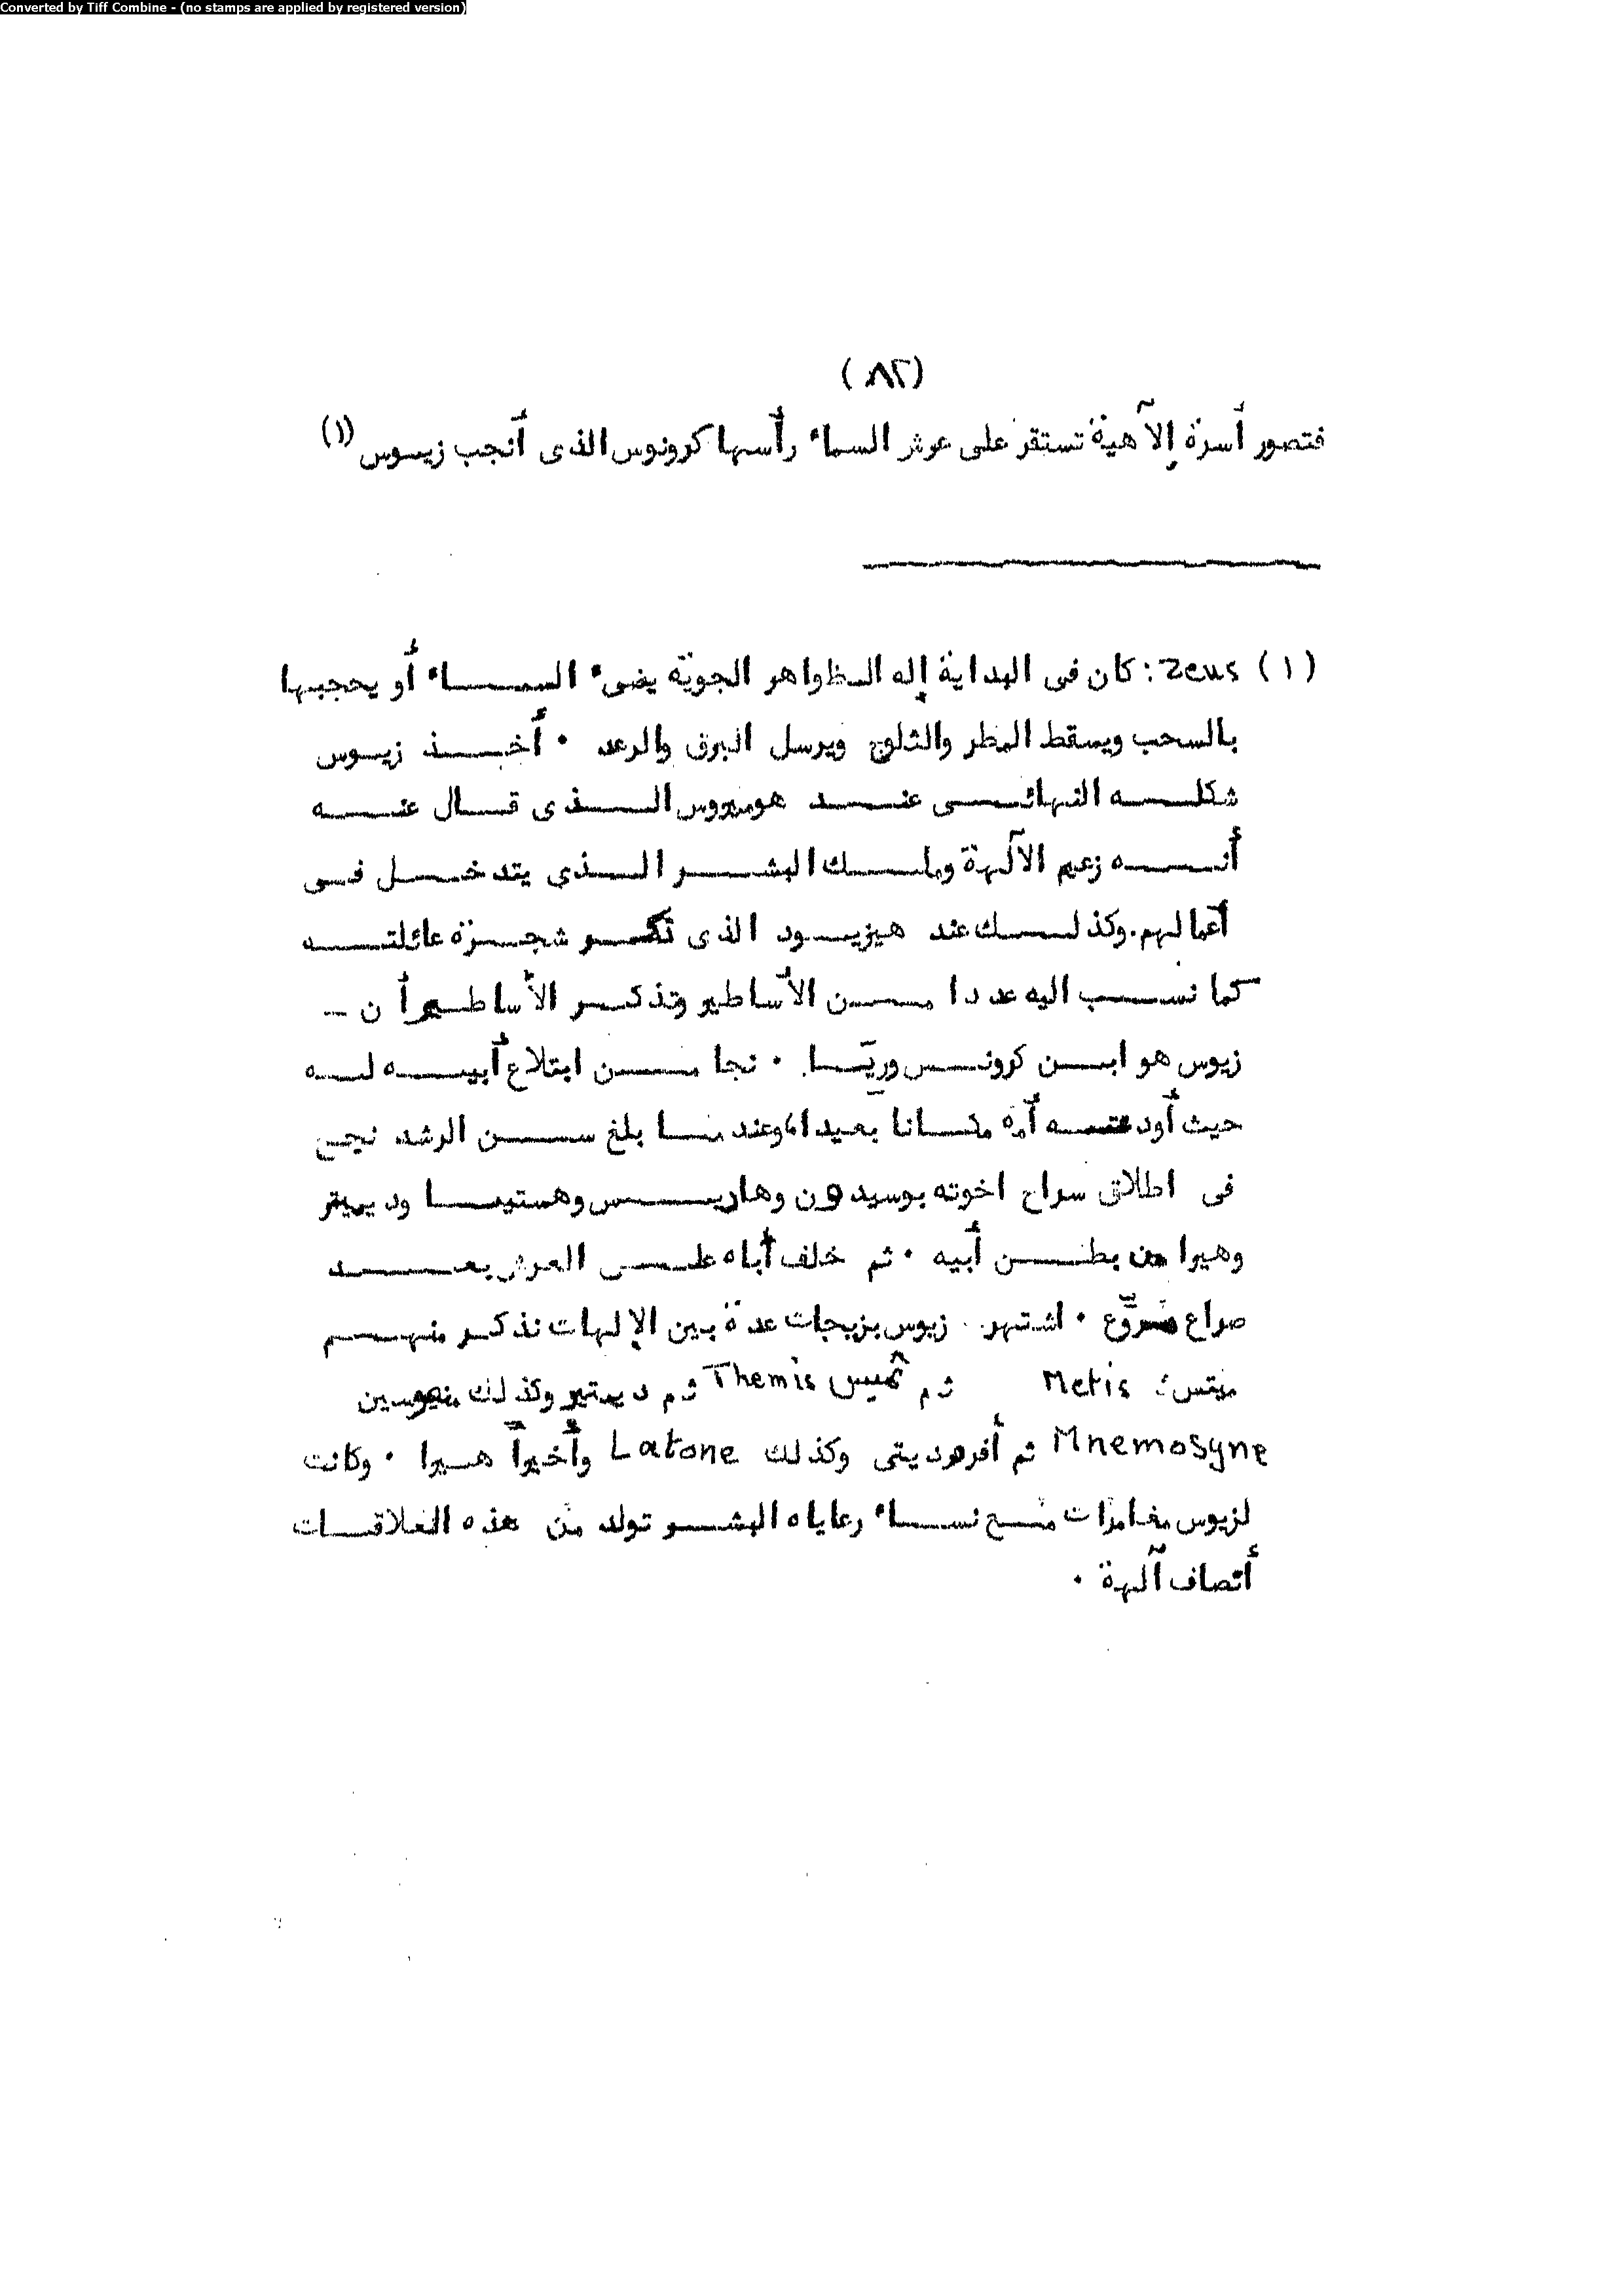 Converted by Tiff Combine - (no stamps are applied by registered version)
(٨٢)
فتصور أسرة إلآهية تستقر على عرش السماء رأسها كرونوس الذى أنجب زيوس (١)
(١) Zeus : كان فى البداية إله الظواهر الجوية يضىء السماء أو يحجبها
بالسحب ويسقط المطر والثلوج ويرسل البرق والرعد ٠ أخذ زيوس
شكله النهائى عند هوميروس الذى قال عنه
أنه زعيم الآلهة وملك البشر الذى يتدخل فى
أعمالهم. وكذلك عند هيزيود الذى ذكر شجرة عائلته
كما نسب اليه عددا من الأساطير وتذكر الأساطير أن -
زيوس هو ابن كرونس وريَّا ٠ نجا من ابتلاع أبيه له
حيث أودعته أمه مكانا بعيدا، وعندما بلغ سن الرشد نجح
فى اطلاق سراح اخوته بوسيدون وهاديس وهستيا وديميتر
وهيرا من بطن أبيه ٠ ثم خلف أباه على العرش بعد
صراع مروّع ٠ اشتهر زيوس بزيجات عدة بين الإلهات نذكر منهم
ميتس: Metis ثم ثميس Themis ثم ديمتير وكذلك منيموسين
Mnemosyne ثم أفروديتى وكذلك Latone وأخيراً هيرا ٠ وكانت
لزيوس مغامرات مع نساء رعاياه البشر تولد من هذه العلاقات
أنصاف آلهة ٠